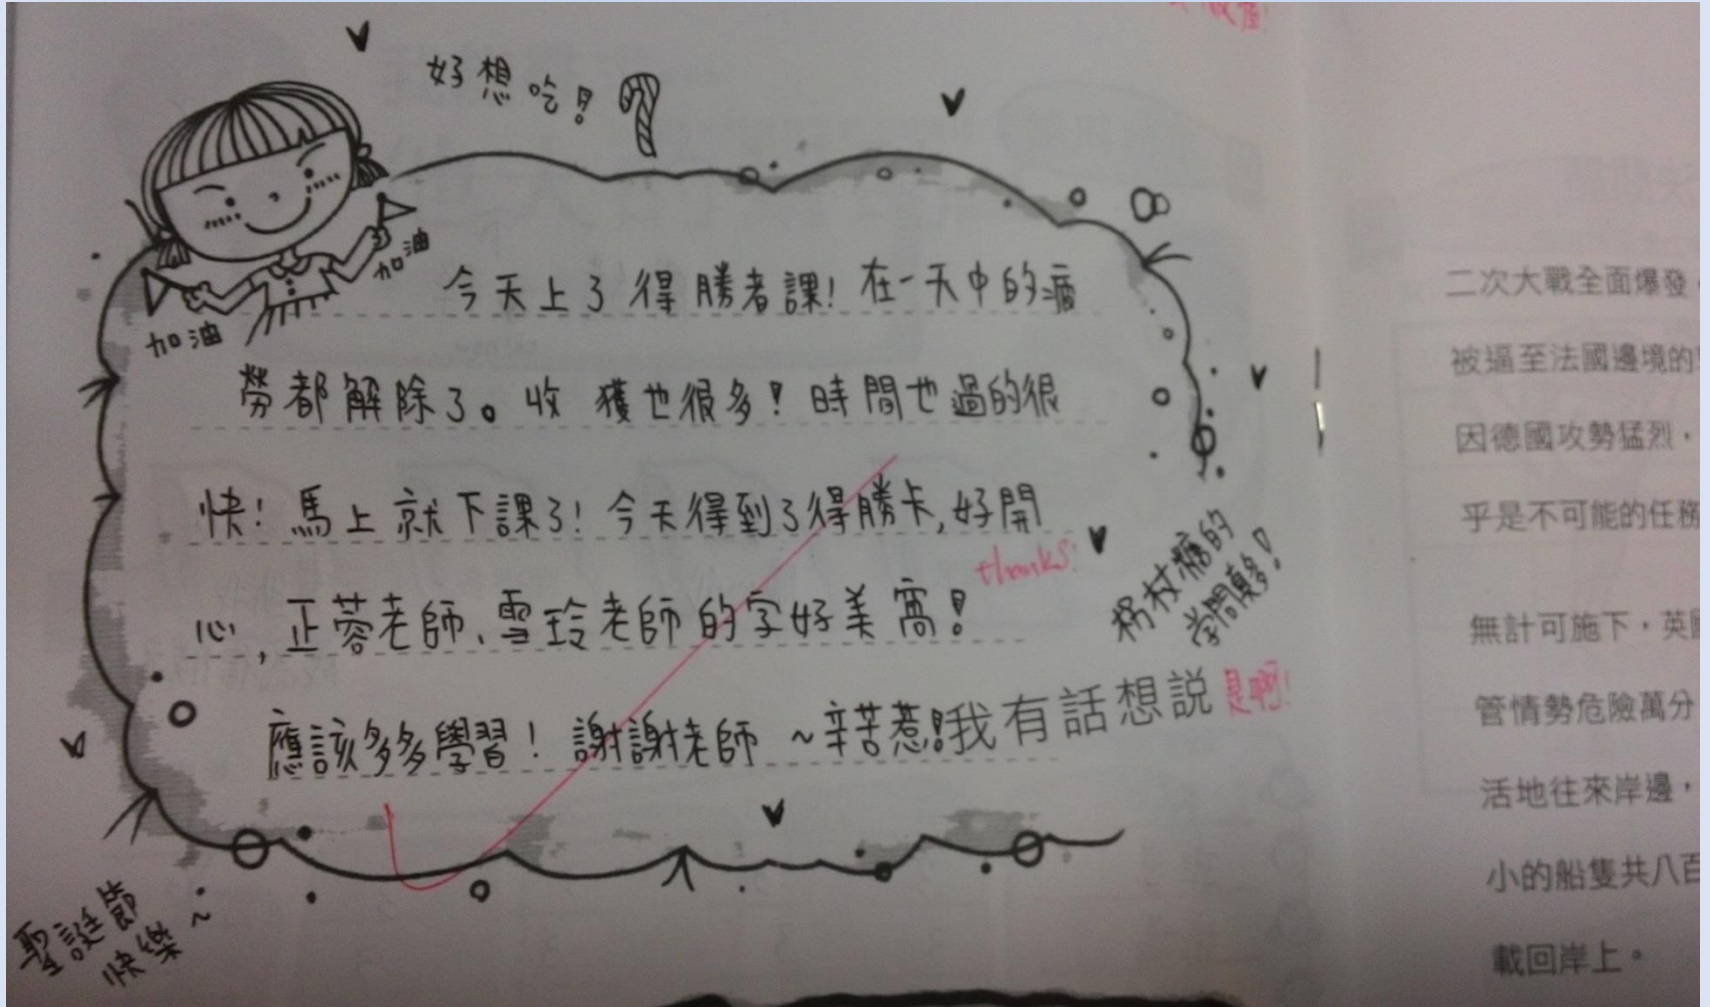 好想吃!
加油
加油
今天上了得勝者課!在一天中的疲
勞都解除了。收獲也很多!時間也過的很
快!馬上就下課了!今天得到了得勝卡,好開
心,正蓉老師、雪玲老師的字好美窩!
thanks!
應該多多學習!謝謝老師~辛苦惹!
我有話想說
是啊!
拐杖糖的
學問真多!
聖誕節
快樂~
二次大戰全面爆發,
被逼至法國邊境的
因德國攻勢猛烈,
乎是不可能的任務
無計可施下,英國
管情勢危險萬分
活地往來岸邊,
小的船隻共八百
載回岸上。